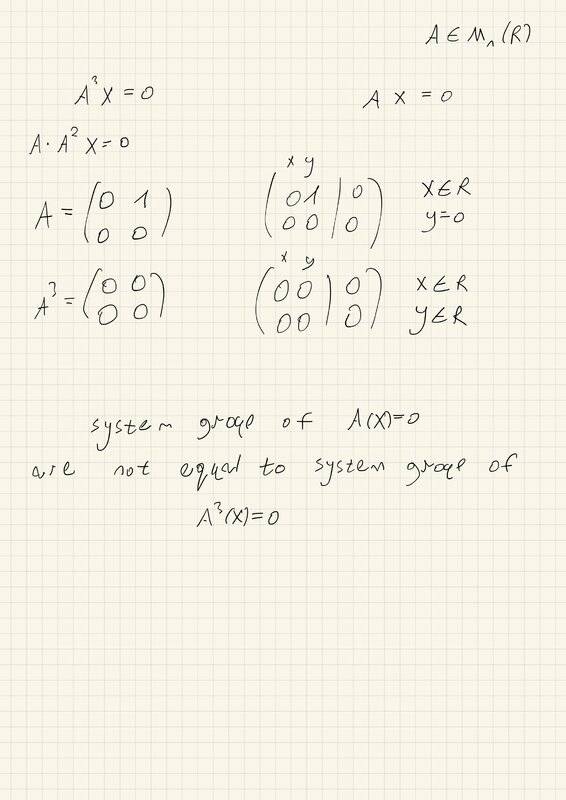 A ∈ M_n(R)
A³X = 0    A X = 0
A · A² X = 0
x y
A = (0 1; 0 0)    (0 1 | 0; 0 0 | 0)    X ∈ R y = 0
x y
A³ = (0 0; 0 0)    (0 0 | 0; 0 0 | 0)    X ∈ R y ∈ R
system groqe of A(X)=0
are not equal to system groqe of
A³(X)=0